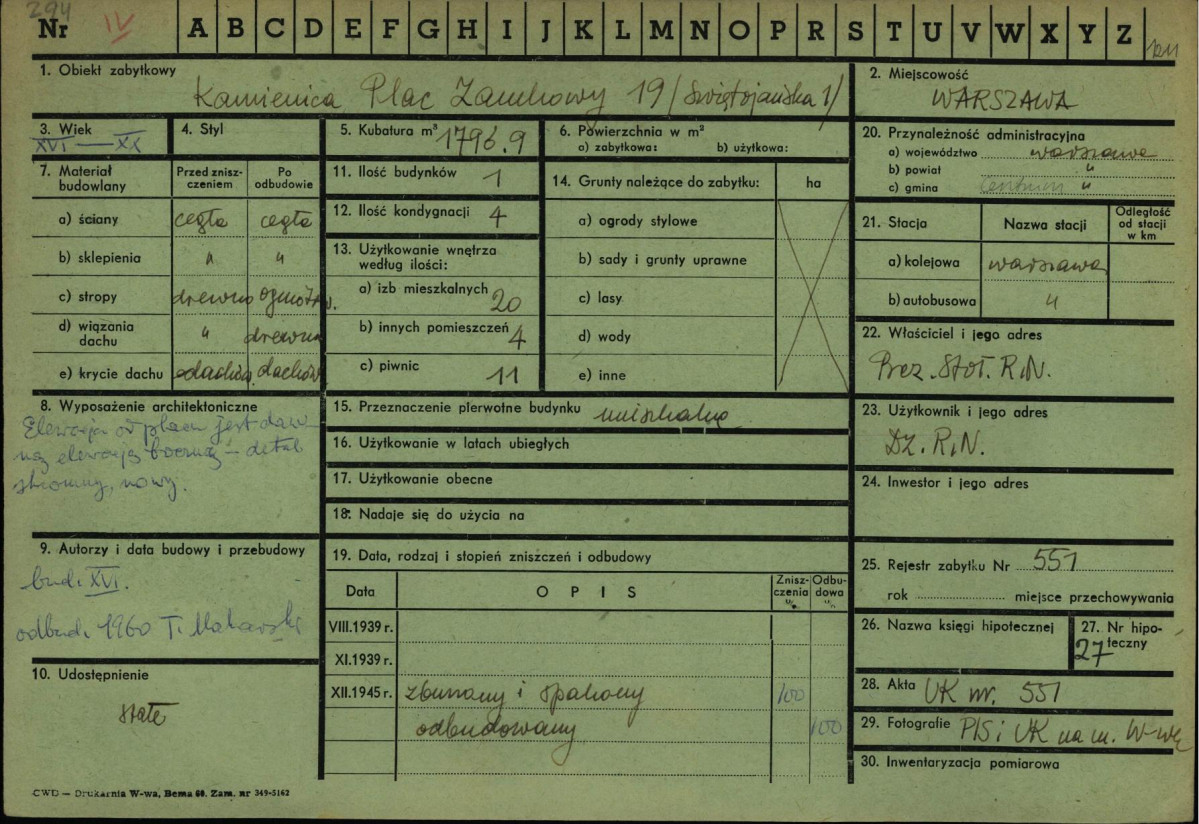 294
Nr IV A B C D E F G H I J K L M N O P R S T U V W X Y Z
1. Obiekt zabytkowy
Kamienica Plac Zamkowy 19 /Świętojańska 1/
2. Miejscowość
WARSZAWA
3. Wiek
XVI — XX
4. Styl
5. Kubatura m³ 1796.9
6. Powierzchnia w m²
a) zabytkowa: b) użytkowa:
20. Przynależność administracyjna
a) województwo warszawa
b) powiat "
c) gmina Centrum "
7. Materiał budowlany
Przed zniszczeniem
Po odbudowie
a) ściany cegła cegła
b) sklepienia " "
c) stropy drewno ogniotrw.
d) wiązania dachu " drewno
e) krycie dachu dachów. dachów.
11. Ilość budynków 1
12. Ilość kondygnacji 4
13. Użytkowanie wnętrza według ilości:
a) izb mieszkalnych 20
b) innych pomieszczeń 4
c) piwnic 11
14. Grunty należące do zabytku: ha
a) ogrody stylowe
b) sady i grunty uprawne
c) lasy
d) wody
e) inne
21. Stacja Nazwa stacji Odległość od stacji w km
a) kolejowa warszawa
b) autobusowa "
22. Właściciel i jego adres
Prez. Stoł. R.N.
8. Wyposażenie architektoniczne
Elewacja od placu jest daw-
ną elewacją boczną – detal
skromny, nowy.
15. Przeznaczenie pierwotne budynku mieszkalne
16. Użytkowanie w latach ubiegłych
17. Użytkowanie obecne
18. Nadaje się do użycia na
23. Użytkownik i jego adres
Dz. R.N.
24. Inwestor i jego adres
9. Autorzy i data budowy i przebudowy
bud. XVI.
odbud. 1960 T. Makarski
19. Data, rodzaj i stopień zniszczeń i odbudowy
Data OPIS Zniszczenia % Odbudowa %
VIII.1939 r.
XI.1939 r.
XII.1945 r. zburzony i spalony 100
odbudowany 100
25. Rejestr zabytku Nr 551
rok miejsce przechowywania
26. Nazwa księgi hipotecznej
27. Nr hipoteczny
27
10. Udostępnienie
stałe
28. Akta UK nr. 551
29. Fotografie PIS i UK na m. W-wę
30. Inwentaryzacja pomiarowa
CWD — Drukarnia W-wa, Bema 60. Zam. nr 349-5162